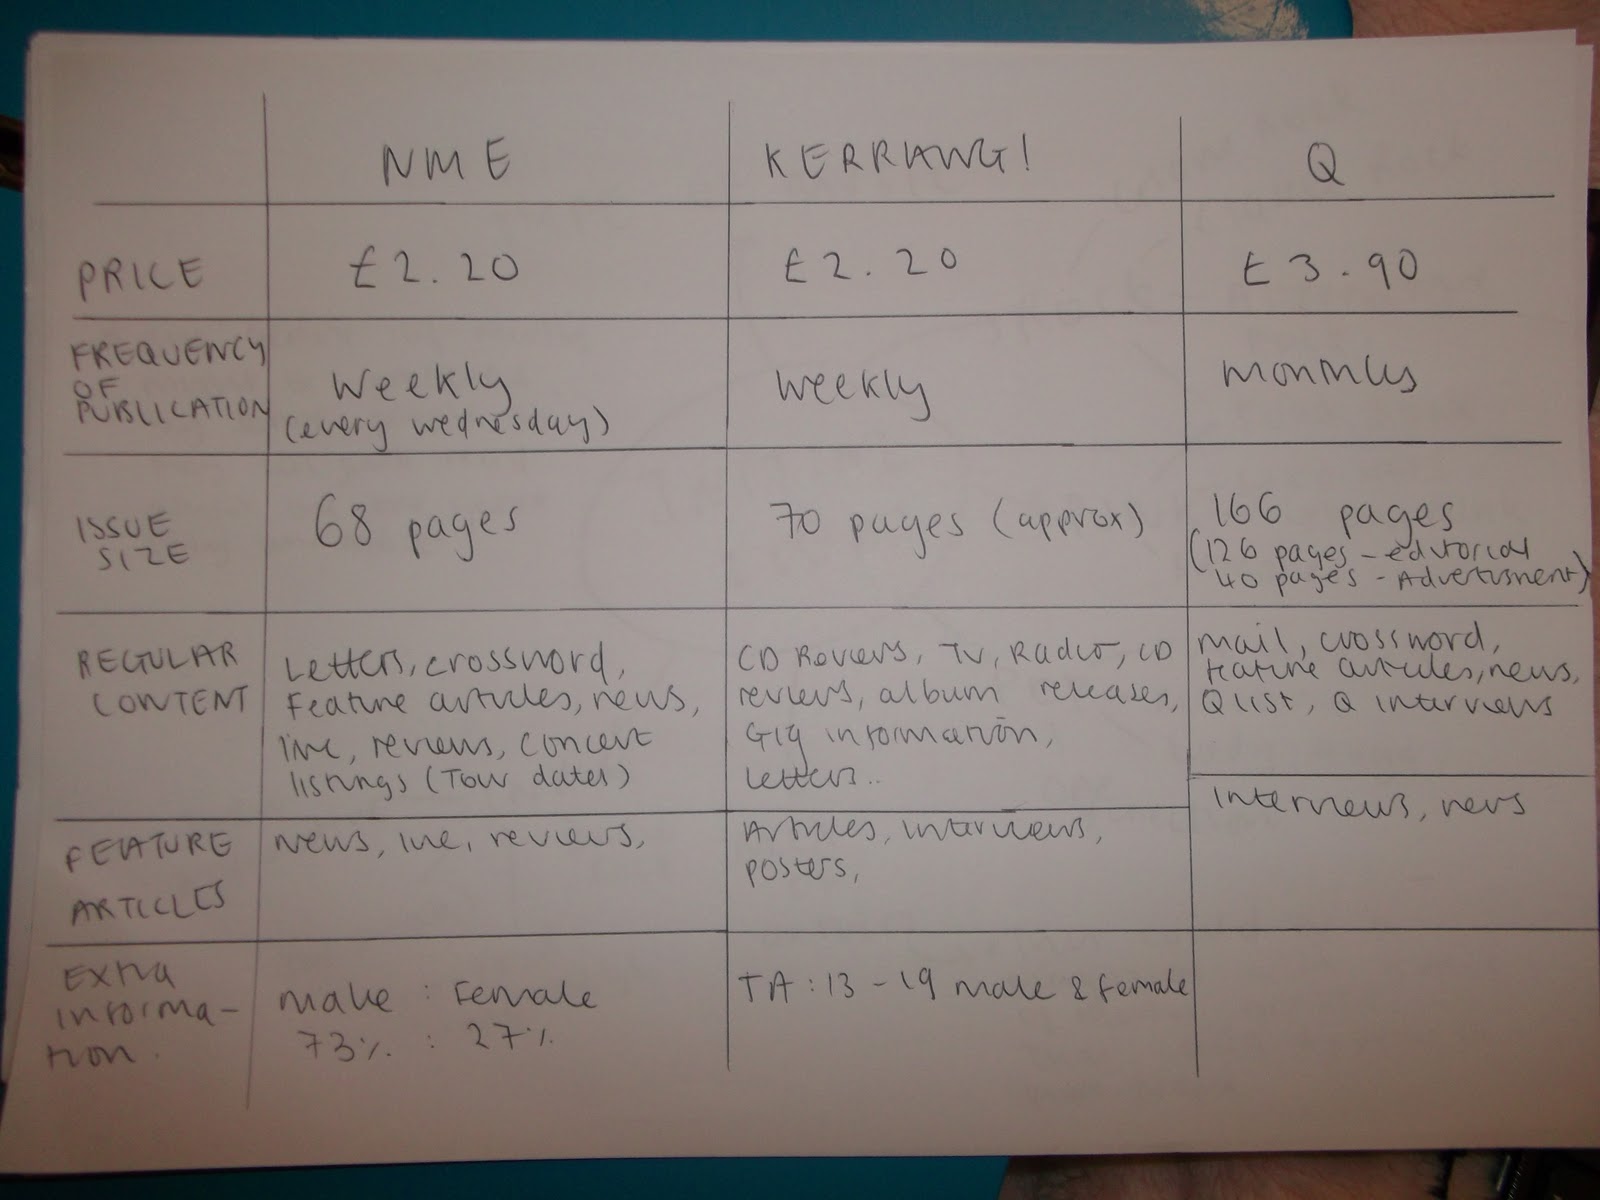 NME KERRANG! Q
PRICE £2.20 £2.20 £3.90
FREQUENCY
OF
PUBLICATION
Weekly
(every wednesday)
weekly
monthly
ISSUE
SIZE
68 pages
70 pages (approx)
166 pages
(126 pages - editorial
40 pages - Advertisment)
REGULAR
CONTENT
Letters, crossword,
Feature articles, news,
live, reviews, concert
listings (Tour dates)
CD Reviews, TV, Radio, CD
reviews, album releases,
Gig information,
letters..
mail, crossword,
feature articles, news,
Q list, Q interviews
FEATURE
ARTICLES
news, live, reviews,
Articles, interviews,
posters,
Interviews, news
Extra
informa-
tion.
male : Female
73% : 27%
TA : 13 - 19 male & female